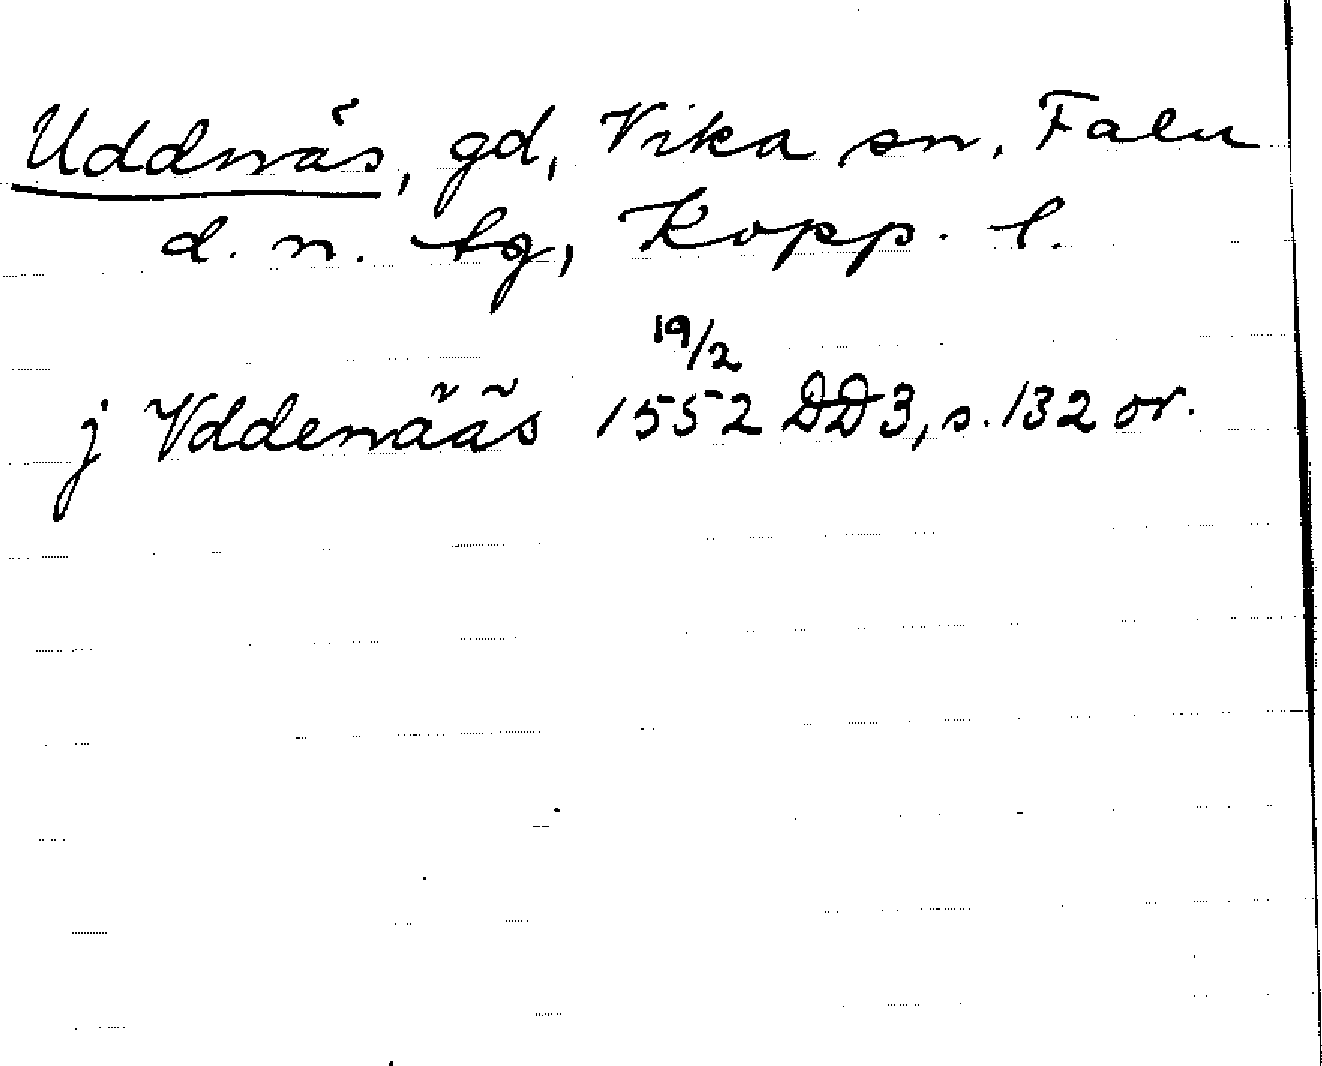 Uddnäs, gd, Vika sn, Falu
d. n. tg, Kopp. l.
19/2
j Vddenääs 1552 DD3, s. 132 or.